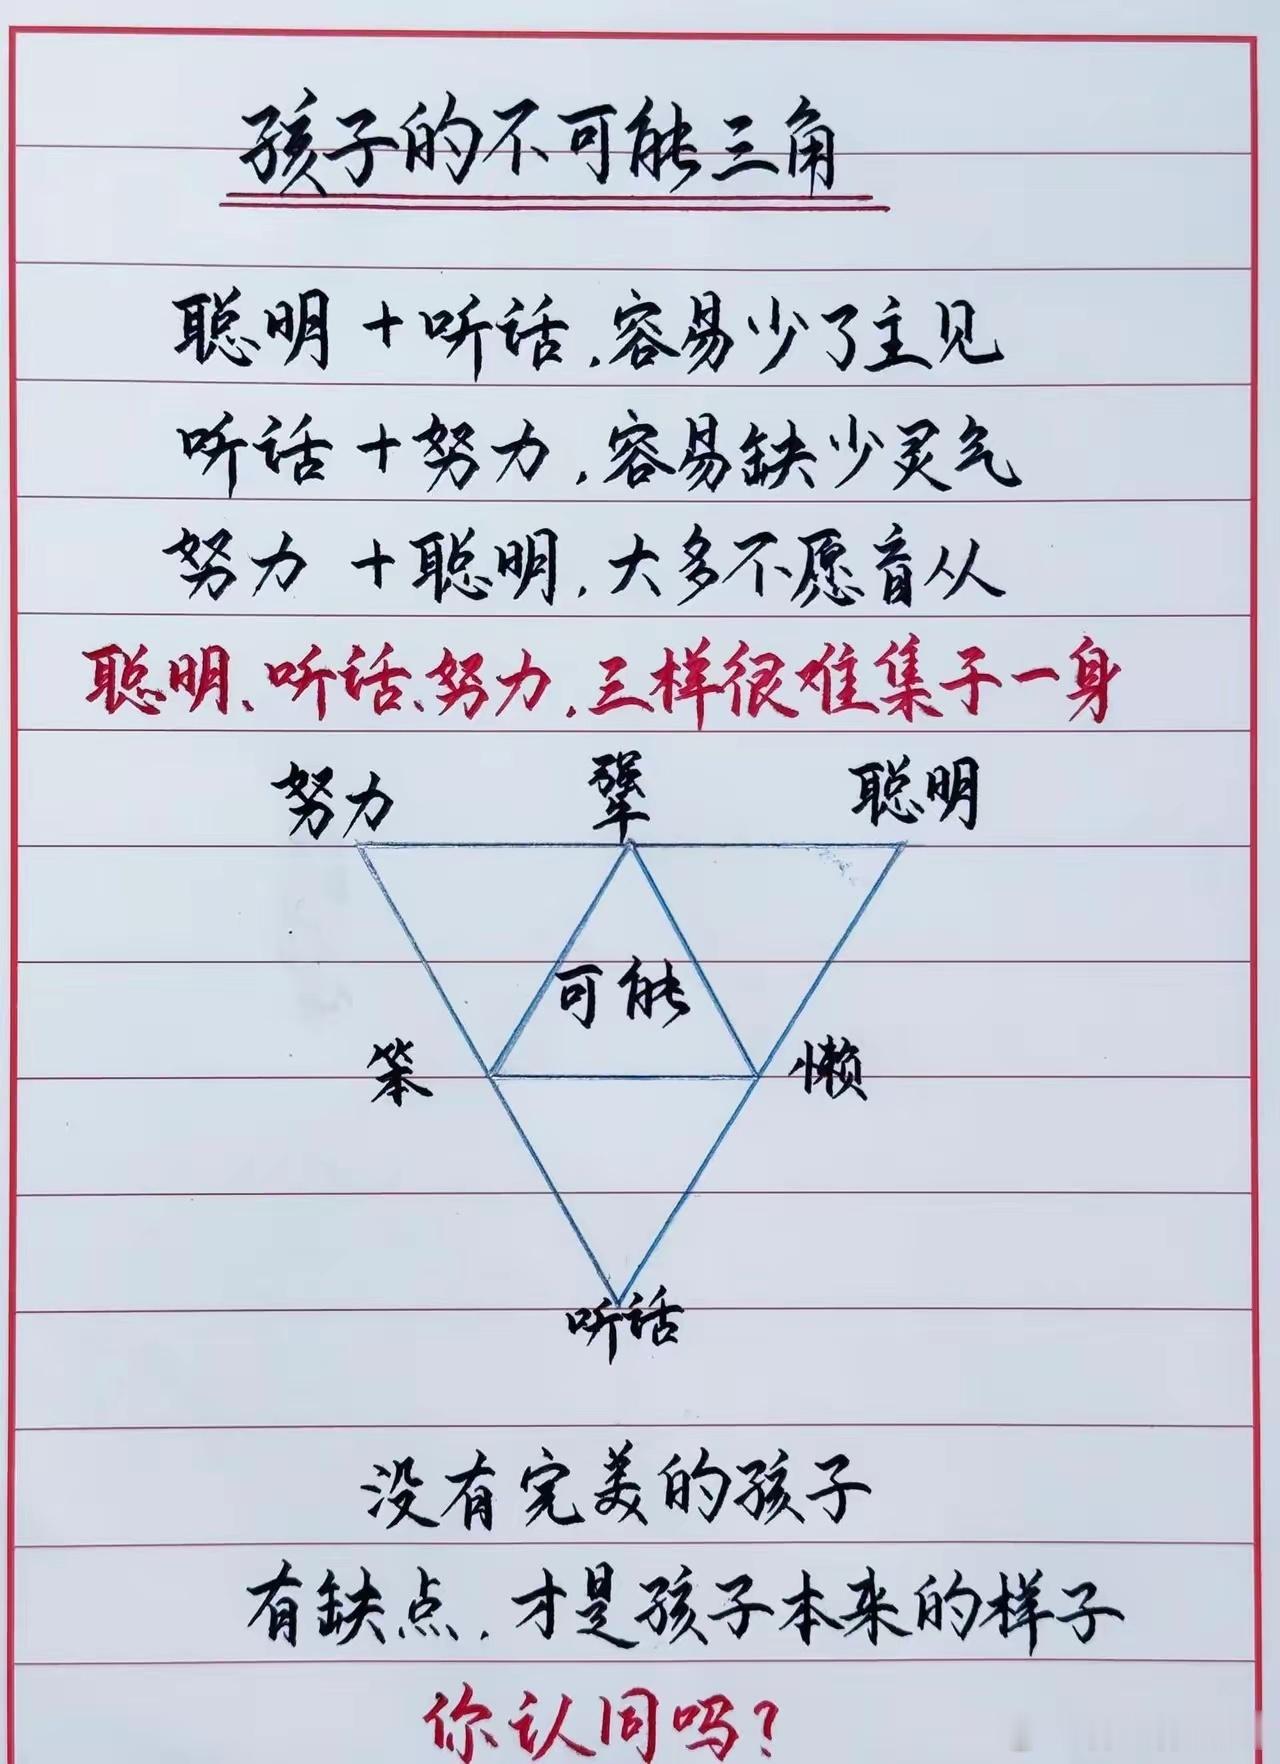 孩子的不可能三角
聪明+听话,容易少了主见
听话+努力,容易缺少灵气
努力+聪明,大多不愿盲从
聪明、听话、努力,三样很难集于一身
努力 犟 聪明
可能
笨 懒
听话
没有完美的孩子
有缺点,才是孩子本来的样子
你认同吗?